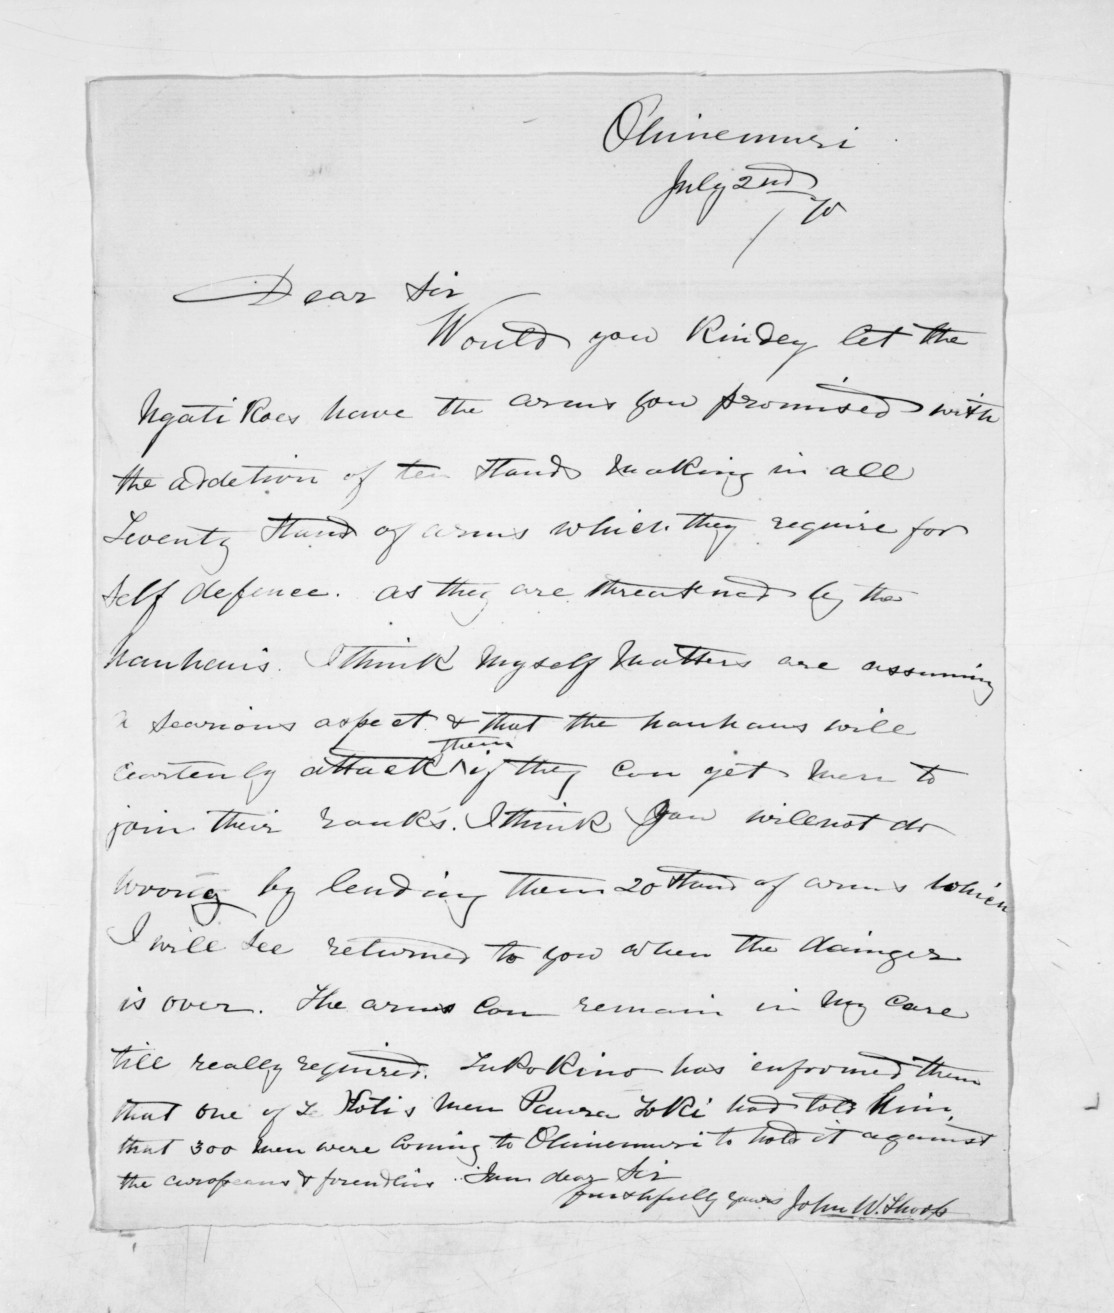 Ohinemuri
July 2nd
/70
Dear Sir
Would you kindey let the
Ngati Koes have the arms you promised with
the addetion of ten Stand making in all
Twenty Stand of arms which they require for
self defence. as they are threatned by the
hauhaus. I think myself matters are assuming
a searious aspect & that the hauhaus will
ceartenly attack them if they can get men to
join their rank's. I think you will not do
wrong by lending them 20 Stand of arms which
I will see returned to you when the dainger
is over. The arms can remain in my care
till really required. Tukokino has enfromed them
that one of Te Kotis men Paura Toki had told him,
that 300 men were coming to Ohinemuri to hold it against
the europeans & friendlies. I am dear Sir
faithfully yours John W. Thorp